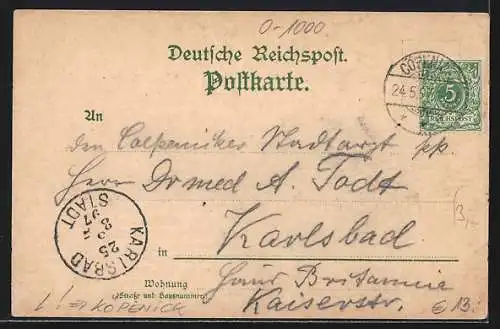 0-1000
Deutsche Reichspost.
Postkarte.
CÖPENICK
24.5.97
5
REICHSPOST
An
den Cölpeniker Stadtarzt pp.
Herrn Dr med A. Todt
Karlsbad
in
KARLSBAD
STADT
25
5
97
8
Wohnung
(Straße und Hausnummer)
Haus Britannie
Kaiserstr.
(3,-
L! => KÖPENICK
€ 13.